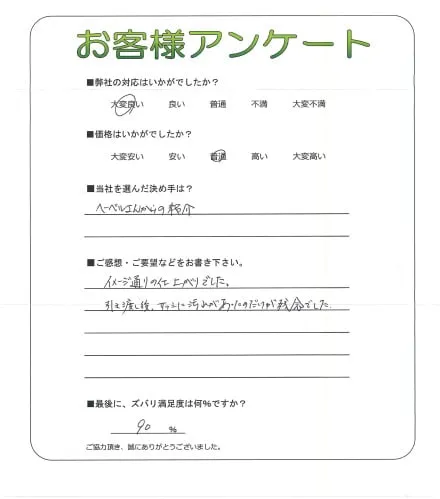 お客様アンケート
■弊社の対応はいかがでしたか？
大変良い 良い 普通 不満 大変不満
■価格はいかがでしたか？
大変安い 安い 普通 高い 大変高い
■当社を選んだ決め手は？
ヘーベルさんからの紹介
■ご感想・ご要望などをお書き下さい。
イメージ通りの仕上がりでした。
引き渡し後、に汚れがあったのだけが残念でした。
■最後に、ズバリ満足度は何％ですか？
90 ％
ご協力頂き、誠にありがとうございました。